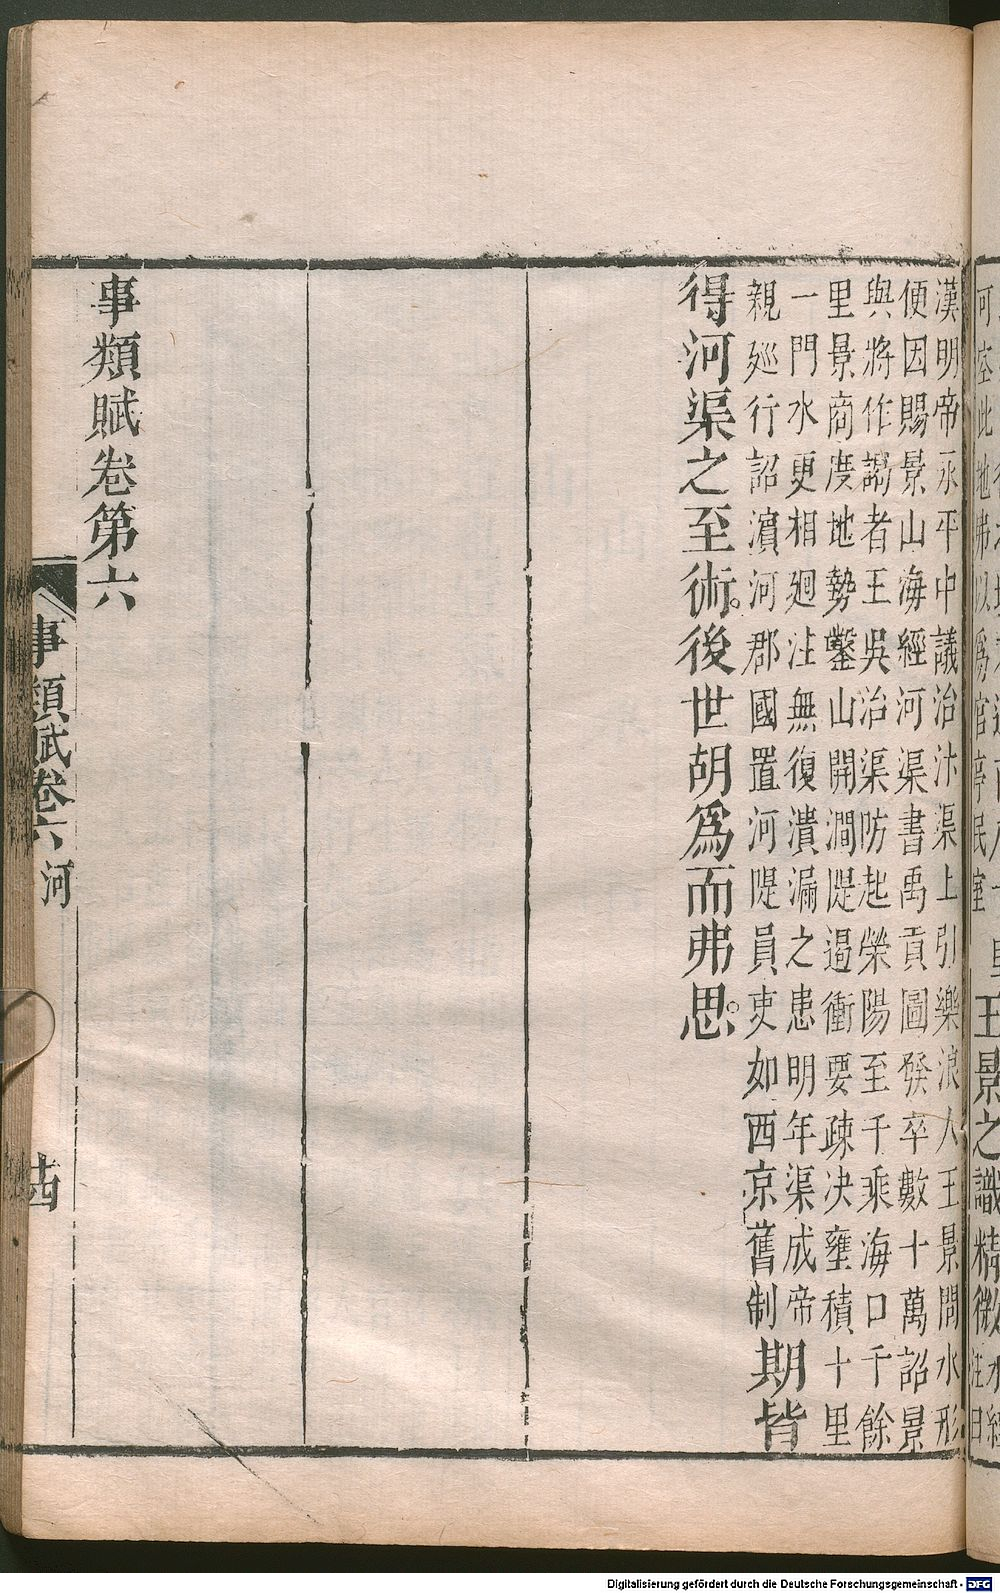 漢明帝永平中議治汴渠上引樂浪人王景問水形
便因賜景山海經河渠書禹貢圖發卒數十萬詔景
與將作謁者王吳治渠防起滎陽至千乘海口千餘
里景商度地勢鑿山開澗隄遏衝要疎决壅積十里
一門水更相廻注無復潰漏之患明年渠成帝
親廵行詔濵河郡國置河隄員吏如西京舊制期皆
得河渠之至術。後世胡爲而弗思。
事類賦卷第六
事類賦卷六 河
十四
王景之識精微
Digitalisierung gefördert durch die Deutsche Forschungsgemeinschaft - DFG